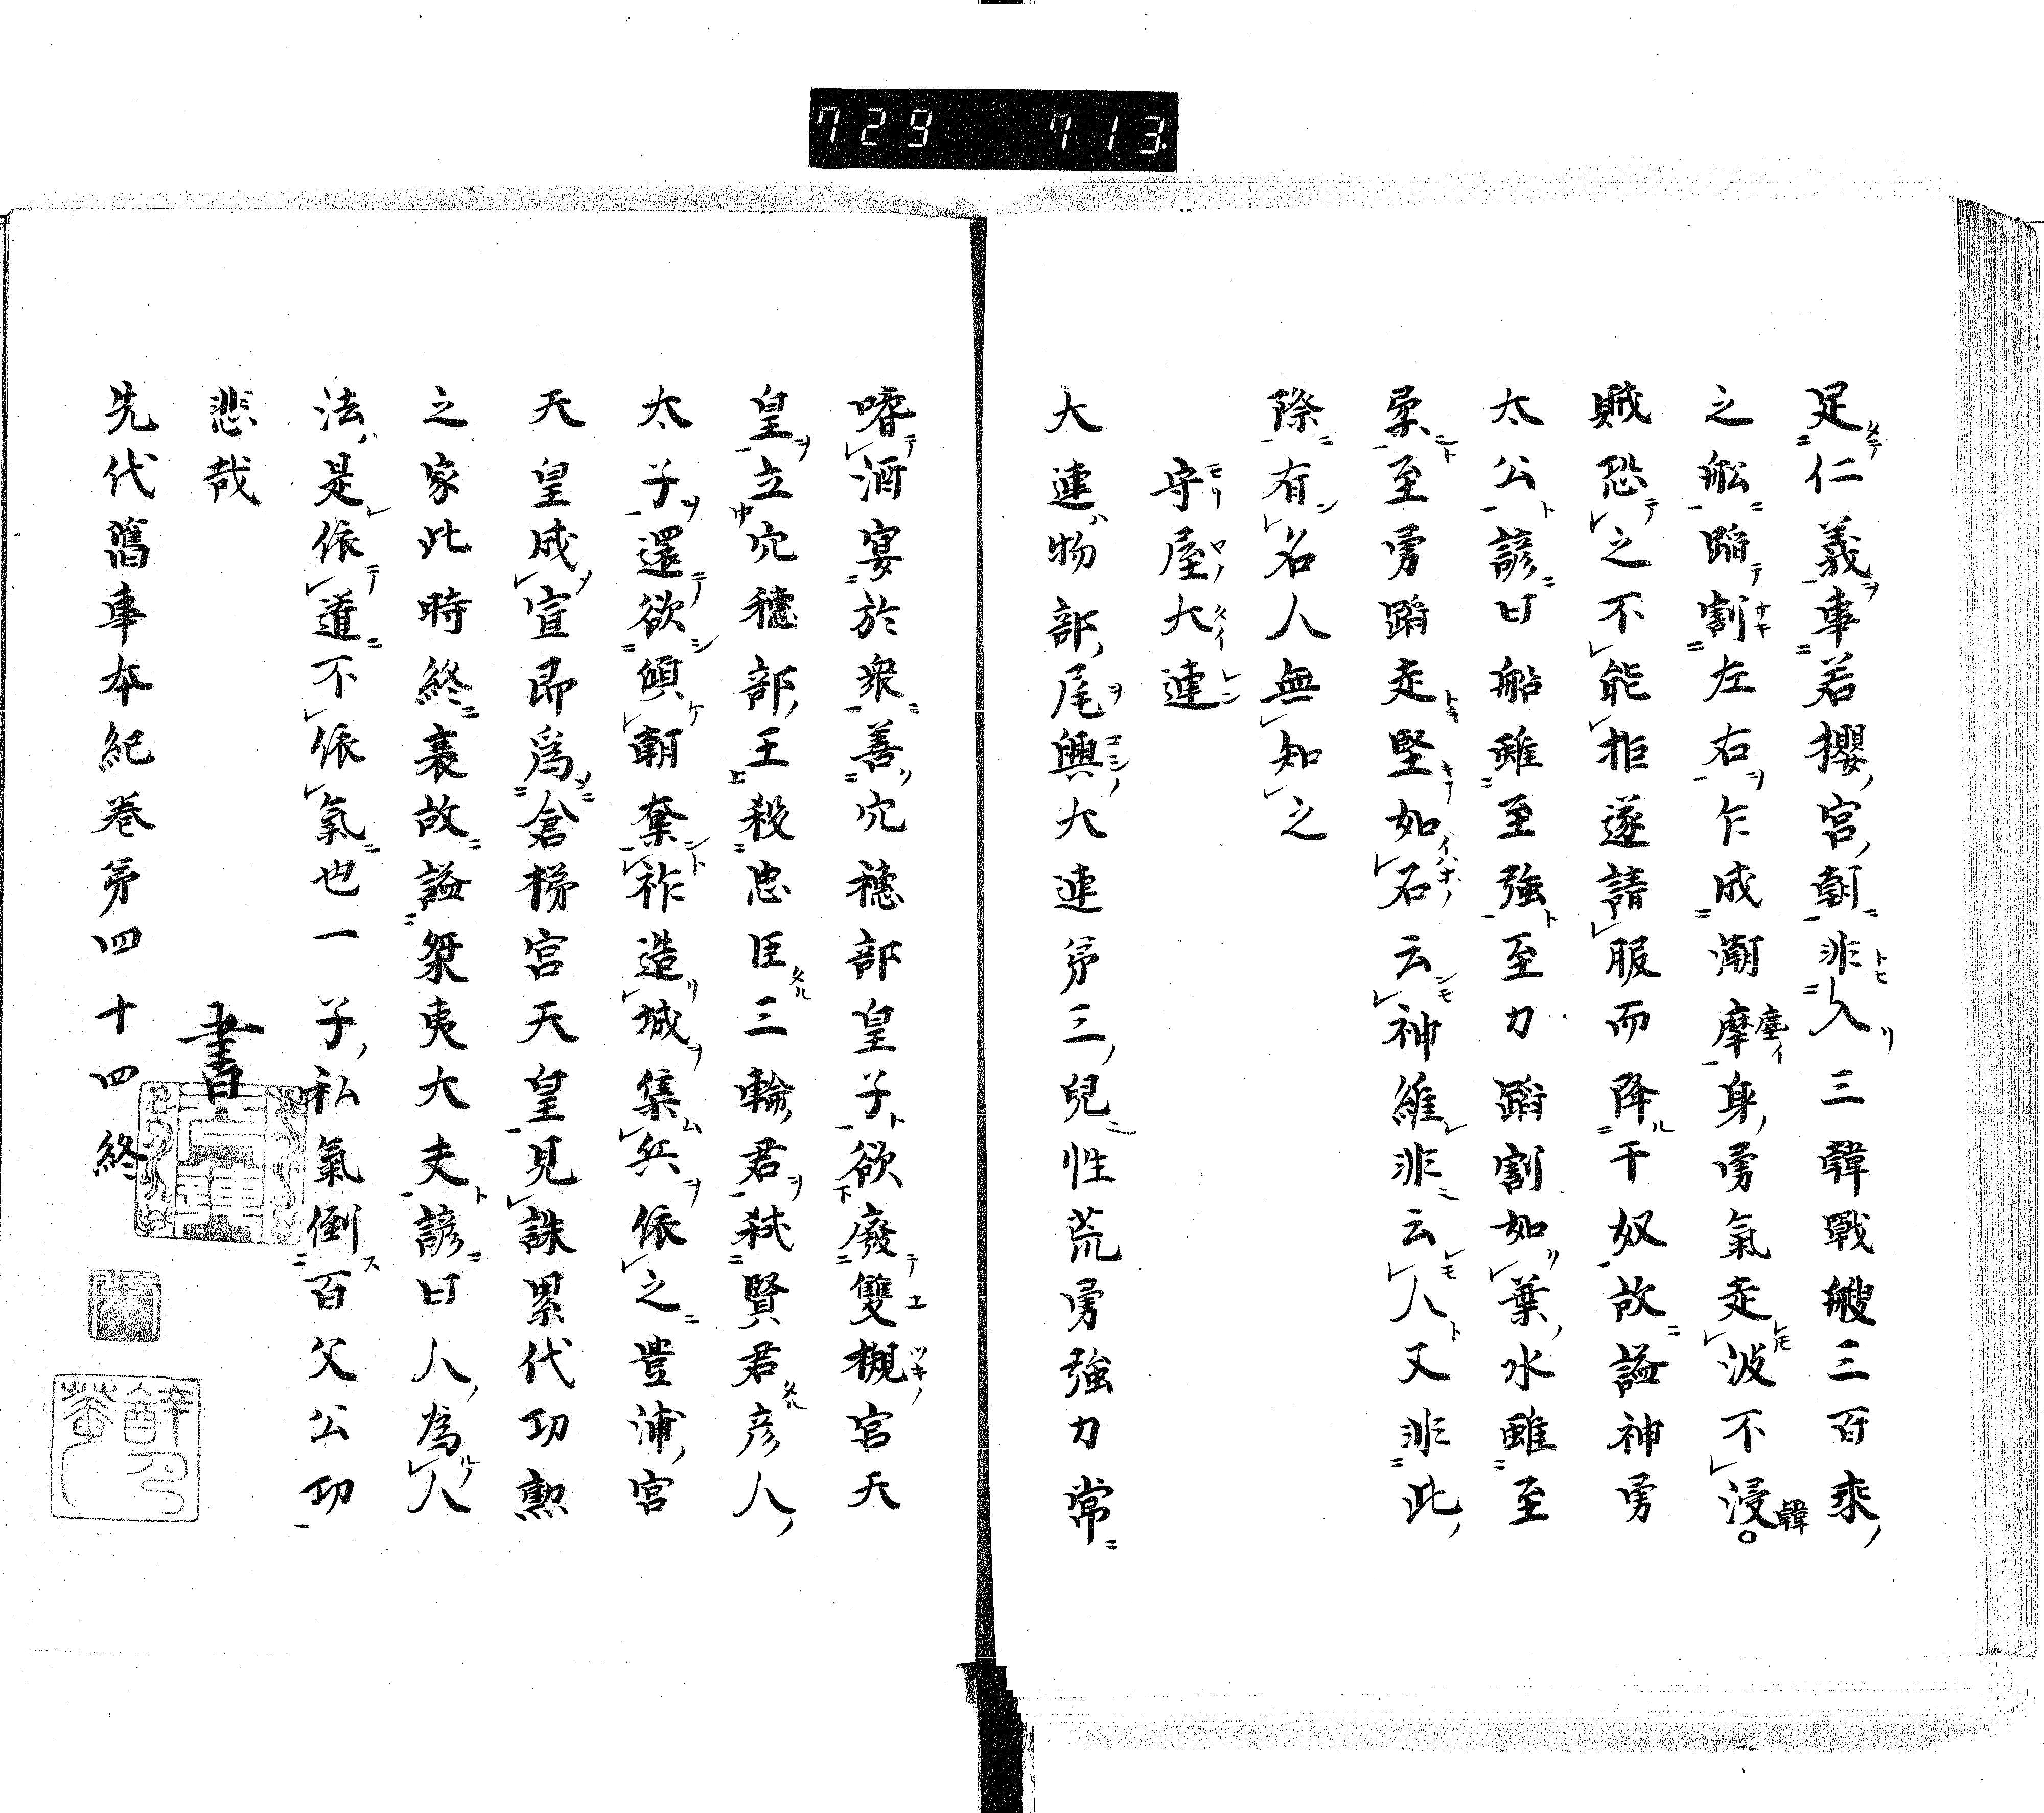 729 713
足仁義車若櫻宮朝非入三韓戰艘三百乘
之船蹈割左右乍成潮摩身勇氣走波不浸
賊恐之不能拒遂請服而降干奴故謚神勇
太公諺曰船雖至強至力蹈割如葉水雖至
柔至勇蹈走堅如石云神維非云人又非此
際有名人無知之
守屋大連
大連物部尾輿大連第三兒性荒勇強力常
嗜酒宴於衆善穴穗部皇子欲廢雙槻宮天
皇立穴穗部王殺忠臣三輪君弑賢君彦人
太子還欲傾朝奪祚造城集兵依之豊浦宮
天皇成宣即爲倉梯宮天皇見誅累代功勲
之家此時終裏故謚桀夷大夫諺曰人為人
法是依道不依氣也一子私氣倒百父公功
悲哉
先代舊事本紀巻第四十四終
書